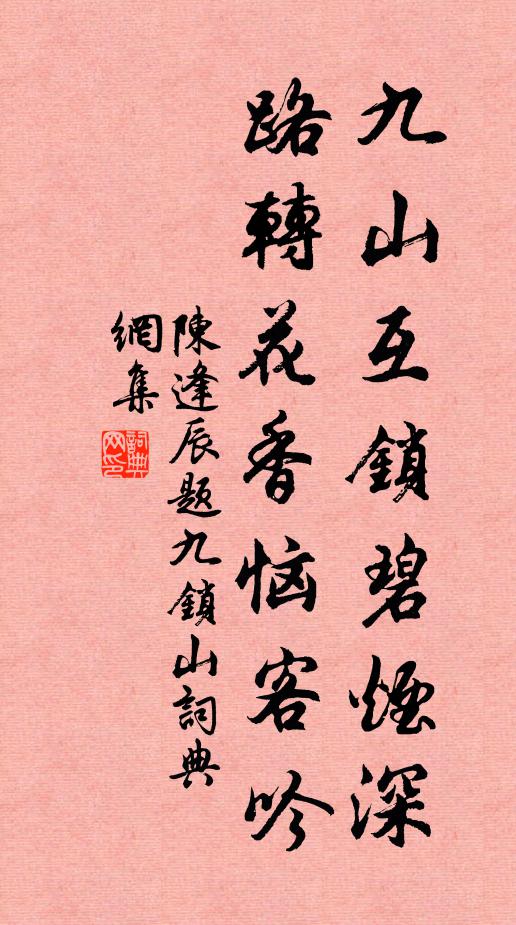 九山互鎖碧煙深
路轉花香恼客吟
陳逢辰題九鎖山詞典
網集
詞典
网印